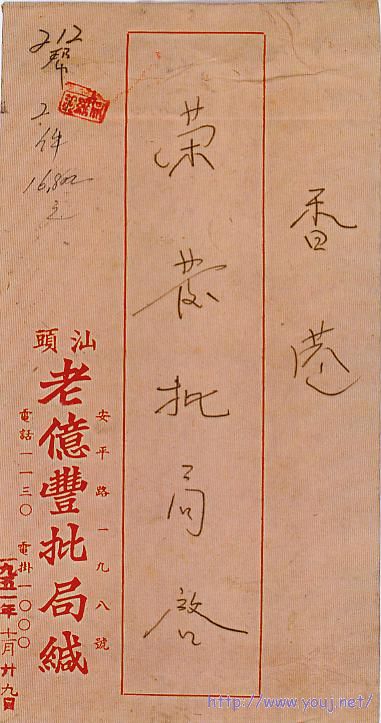 香港
荣發批局啟
212
帮
2件
16,800
元
汕頭
安平路一九八號
老億豐批局緘
電話一一三〇 電掛一〇〇〇
一九五一年十月廿九日
http://www.youj.net/